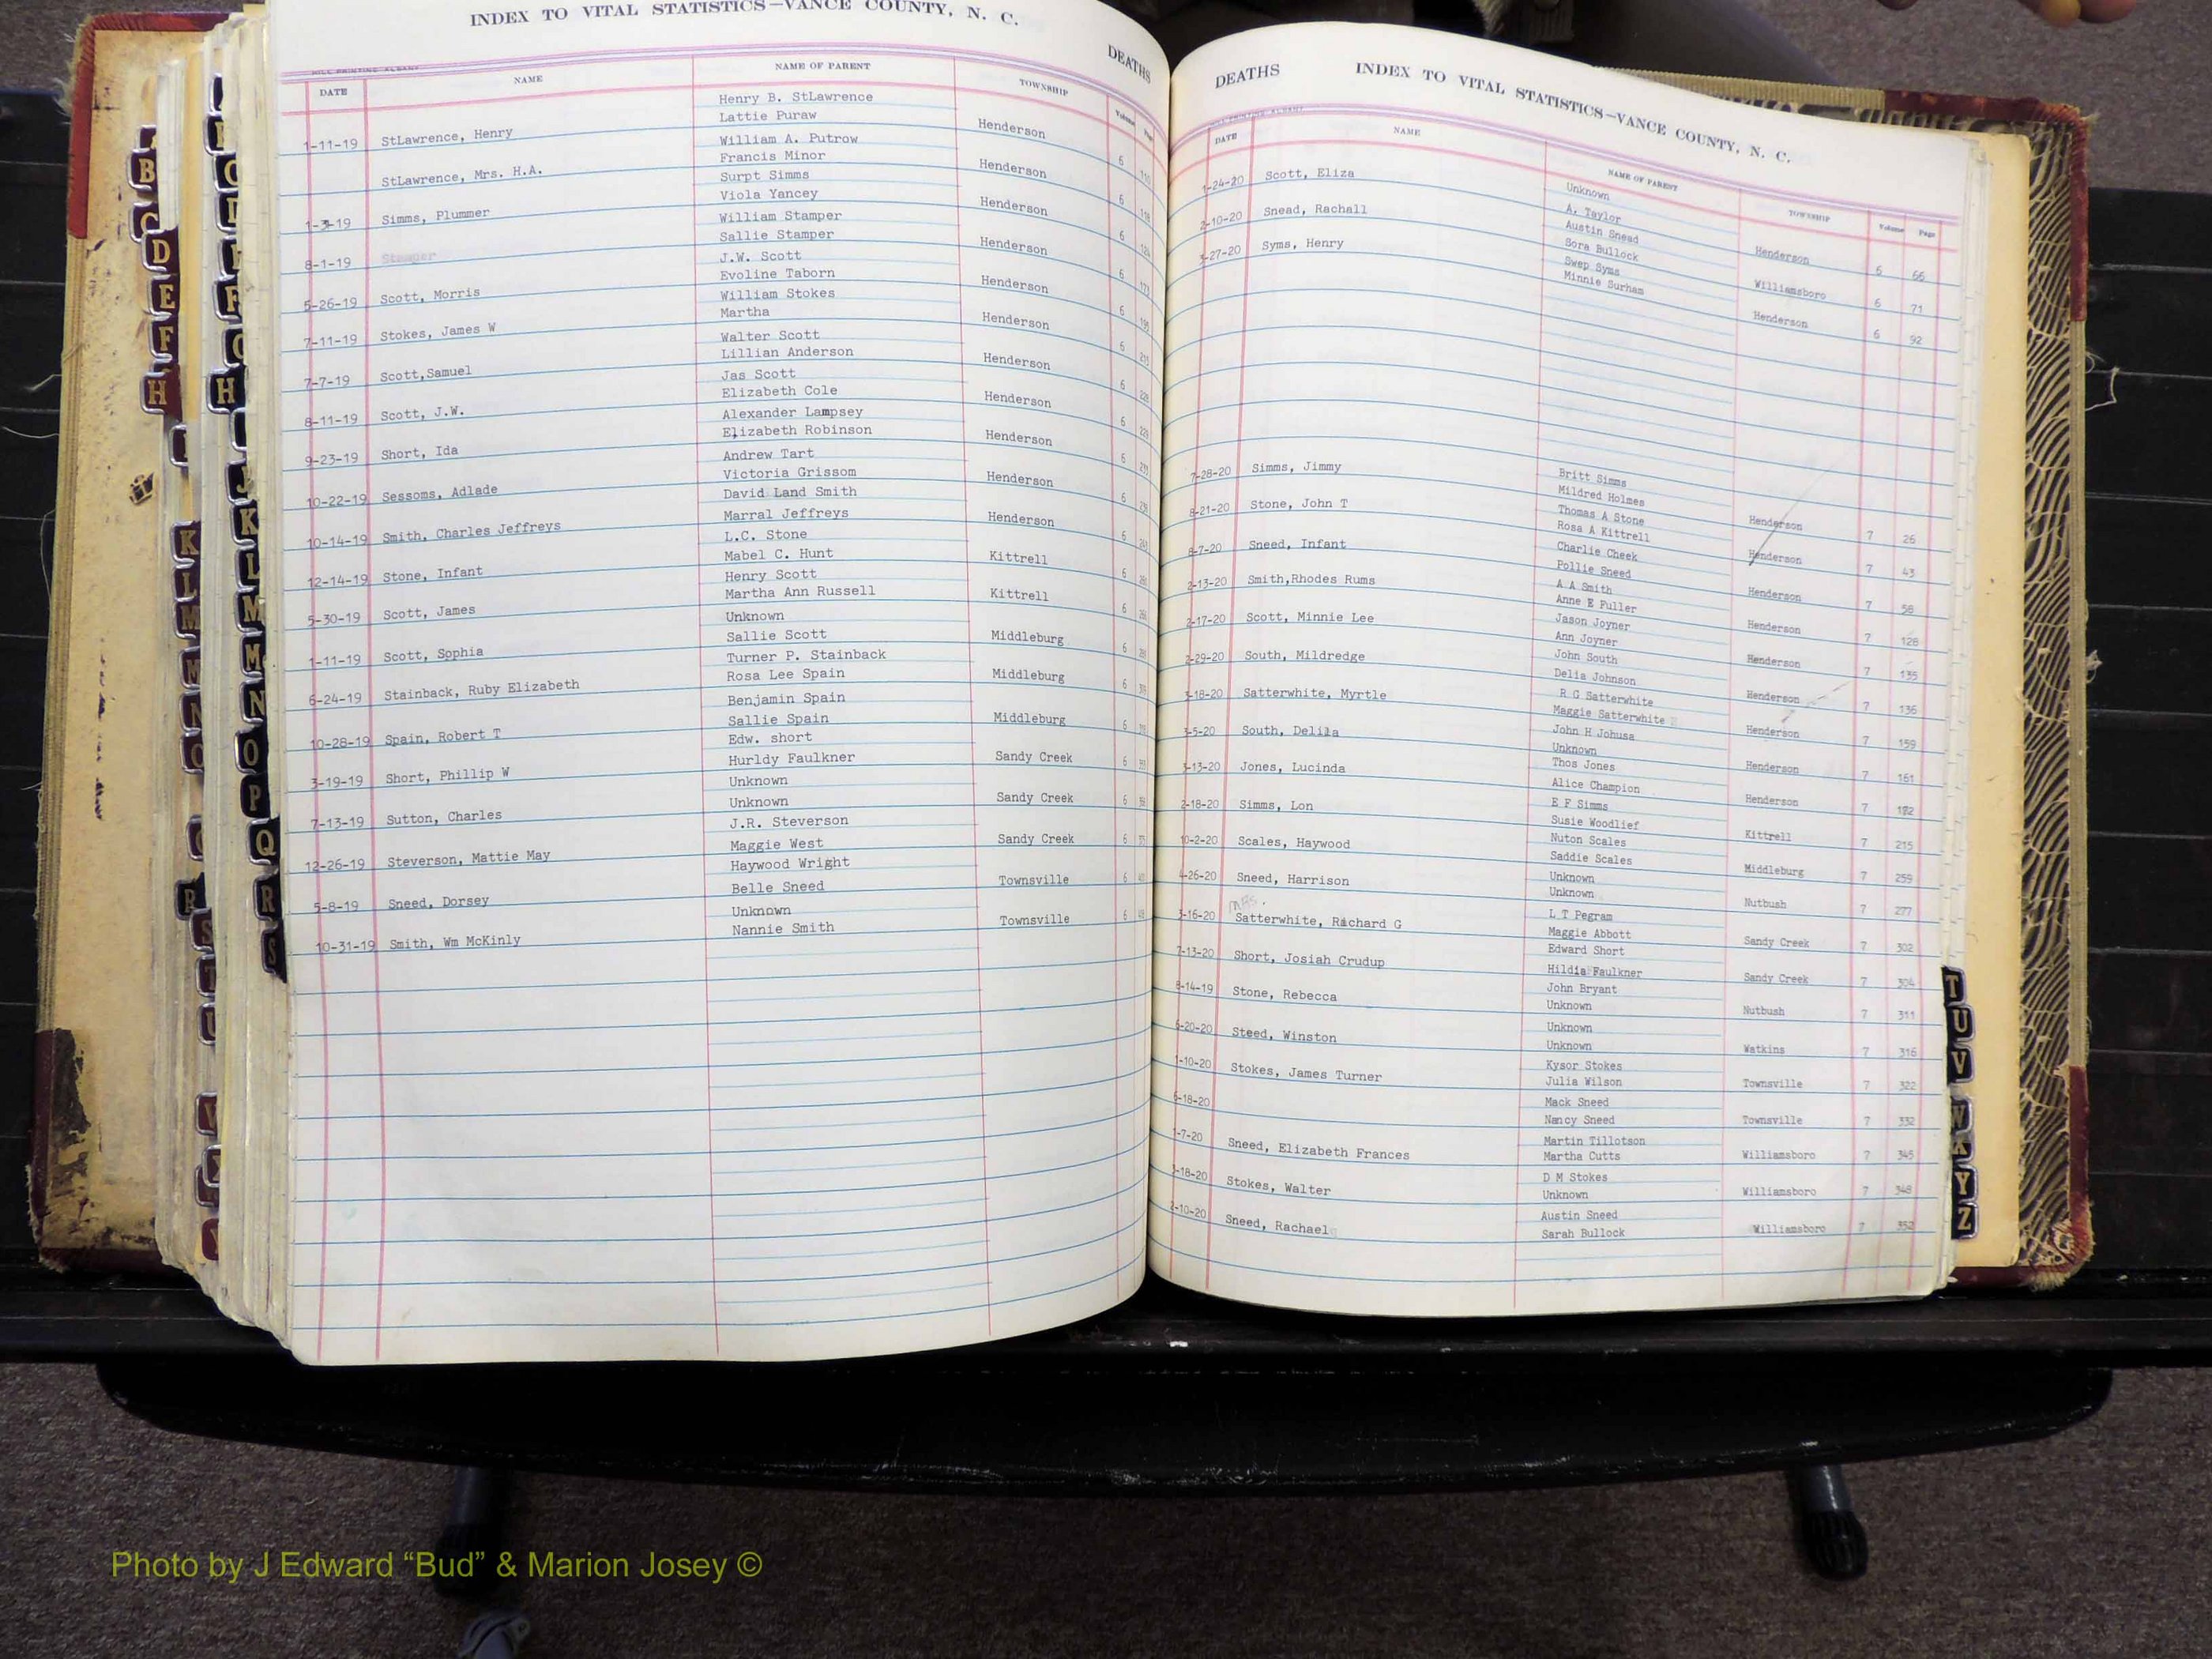 INDEX TO VITAL STATISTICS—VANCE COUNTY, N. C.
DEATHS
DATE NAME NAME OF PARENT TOWNSHIP Volume Page
Henry B. StLawrence
1-11-19 StLawrence, Henry Lattie Puraw Henderson 6
William A. Putrow
StLawrence, Mrs. H.A. Francis Minor Henderson 6
Surpt Simms
1-3-19 Simms, Plummer Viola Yancey Henderson 6
William Stamper
8-1-19 Stamper Sallie Stamper Henderson 6
J.W. Scott
5-26-19 Scott, Morris Evoline Taborn Henderson 6
William Stokes
7-11-19 Stokes, James W Martha Henderson 6
Walter Scott
7-7-19 Scott,Samuel Lillian Anderson Henderson 6
Jas Scott
8-11-19 Scott, J.W. Elizabeth Cole Henderson 6
Alexander Lampsey
9-23-19 Short, Ida Elizabeth Robinson Henderson 6
Andrew Tart
10-22-19 Sessoms, Adlade Victoria Grissom Henderson 6
David Land Smith
10-14-19 Smith, Charles Jeffreys Marral Jeffreys Henderson 6
L.C. Stone
12-14-19 Stone, Infant Mabel C. Hunt Kittrell 6
Henry Scott
5-30-19 Scott, James Martha Ann Russell Kittrell 6
Unknown
1-11-19 Scott, Sophia Sallie Scott Middleburg 6
Turner P. Stainback
6-24-19 Stainback, Ruby Elizabeth Rosa Lee Spain Middleburg 6
Benjamin Spain
10-28-19 Spain, Robert T Sallie Spain Middleburg 6
Edw. short
3-19-19 Short, Phillip W Hurldy Faulkner Sandy Creek 6
Unknown
7-13-19 Sutton, Charles Unknown Sandy Creek 6
J.R. Steverson
12-26-19 Steverson, Mattie May Maggie West Sandy Creek 6
Haywood Wright
5-8-19 Sneed, Dorsey Belle Sneed Townsville 6
Unknown
10-31-19 Smith, Wm McKinly Nannie Smith Townsville 6
DEATHS INDEX TO VITAL STATISTICS—VANCE COUNTY, N. C.
DATE NAME NAME OF PARENT TOWNSHIP Volume Page
Unknown
1-24-20 Scott, Eliza A. Taylor Henderson 6 66
Austin Snead
2-10-20 Snead, Rachall Sora Bullock Williamsboro 6 71
Swep Syms
3-27-20 Syms, Henry Minnie Surham Henderson 6 92
Britt Simms
7-28-20 Simms, Jimmy Mildred Holmes Henderson 7 26
Thomas A Stone
8-21-20 Stone, John T Rosa A Kittrell Henderson 7 43
Charlie Cheek
8-7-20 Sneed, Infant Pollie Sneed Henderson 7 58
A A Smith
2-13-20 Smith,Rhodes Rums Anne E Fuller Henderson 7 126
Jason Joyner
2-17-20 Scott, Minnie Lee Ann Joyner Henderson 7 135
John South
2-29-20 South, Mildredge Delia Johnson Henderson 7 136
R G Satterwhite
3-18-20 Satterwhite, Myrtle Maggie Satterwhite Henderson 7 159
John H Johusa
3-5-20 South, Delila Unknown Henderson 7 161
Thos Jones
3-13-20 Jones, Lucinda Alice Champion Henderson 7
E F Simms
2-18-20 Simms, Lon Susie Woodlief Kittrell 7 215
Nuton Scales
10-2-20 Scales, Haywood Saddie Scales Middleburg 7 259
Unknown
4-26-20 Sneed, Harrison Unknown Nutbush 7 277
mrs.
L T Pegram
3-16-20 Satterwhite, Richard G Maggie Abbott Sandy Creek 7 302
Edward Short
7-13-20 Short, Josiah Crudup Hildia Faulkner Sandy Creek 7 304
John Bryant
8-14-19 Stone, Rebecca Unknown Nutbush 7 311
Unknown
6-20-20 Steed, Winston Unknown Watkins 7 316
Kysor Stokes
1-10-20 Stokes, James Turner Julia Wilson Townsville 7 322
Mack Sneed
6-18-20 Nancy Sneed Townsville 7 332
Martin Tillotson
1-7-20 Sneed, Elizabeth Frances Martha Cutts Williamsboro 7 345
D M Stokes
3-18-20 Stokes, Walter Unknown Williamsboro 7 348
Austin Sneed
2-10-20 Sneed, Rachael Sarah Bullock Williamsboro 7 352
B
C
D
E
F
H
K
L
M
M
N
O
R
S
T
U
V
H
J
K
L
M
M
N
O
P
Q
R
S
T
U
V
W
X
Y
Z
Photo by J Edward “Bud” & Marion Josey ©